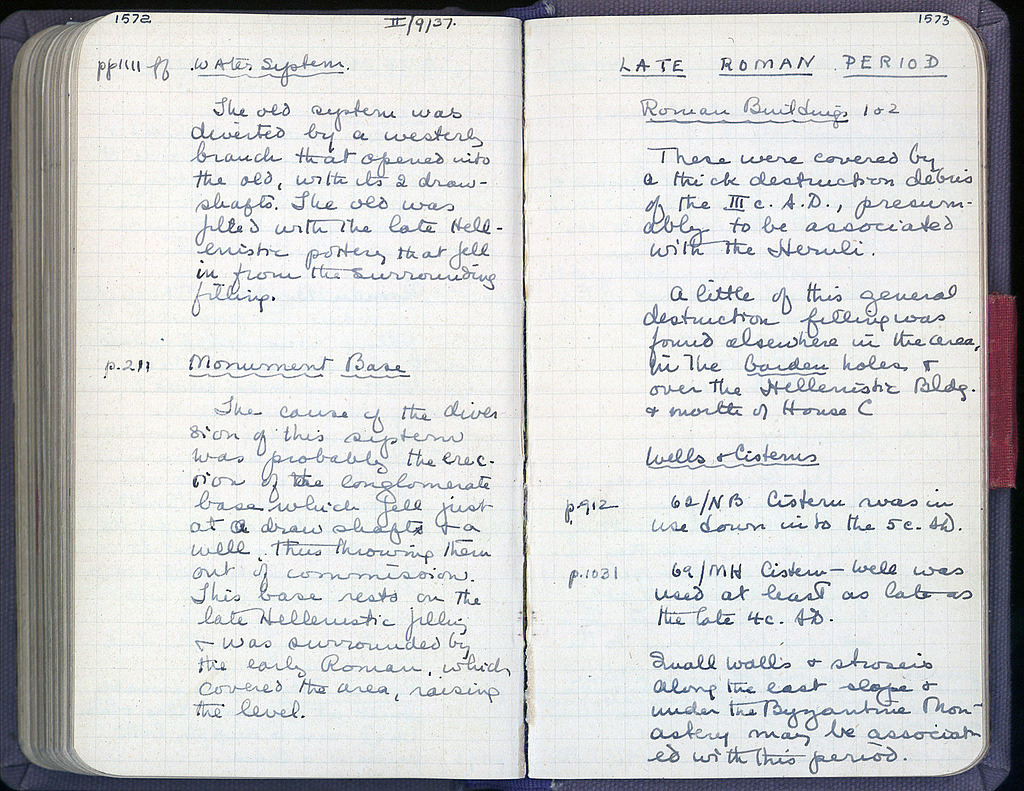 1572
II/9/37.
pp 1111 ff
Water System.
The old system was
diverted by a westerly
branch that opened into
the old, with its 2 draw-
shafts. The old was
filled with the late Hell-
enistic pottery that fell
in from the surrounding
filling.
p. 211
Monument Base
The cause of the diver
sion of this system
was probably the erec-
tion of the conglomerate
base which fell just
at a draw shafts & a
well, thus throwing them
out of commission.
This base rests on the
late Hellenistic filling
& was surrounded by
the early Roman, which
covered the area, raising
the level.
1573
LATE ROMAN PERIOD
Roman Buildings 1 & 2
These were covered by
a thick destruction débris
of the III c. A.D., presum-
ably to be associated
with the Heruli.
A little of this general
destruction filling was
found elsewhere in the area,
in the Garden holes &
over the Hellenistic Bldg.
& north of House C
Wells & Cisterns
p. 912
62/NB Cistern was in
use down into the 5c. AD.
p. 1031
69/MH Cistern - Well was
used at least as late as
the late 4c. AD.
Small walls & stroseis
along the east slope &
under the Byzantine Mon-
astery may be associat
ed with this period.